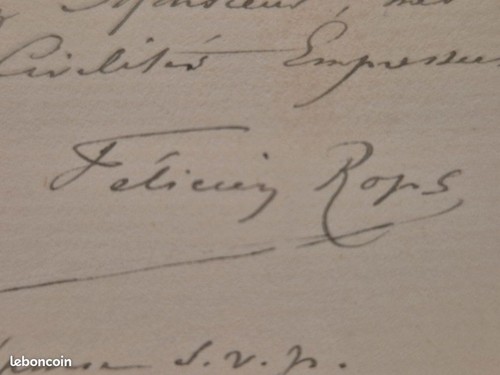 Monsieur, mes
Civilités Empressées
Félicien Rops
Réponse s.v.p.
leboncoin